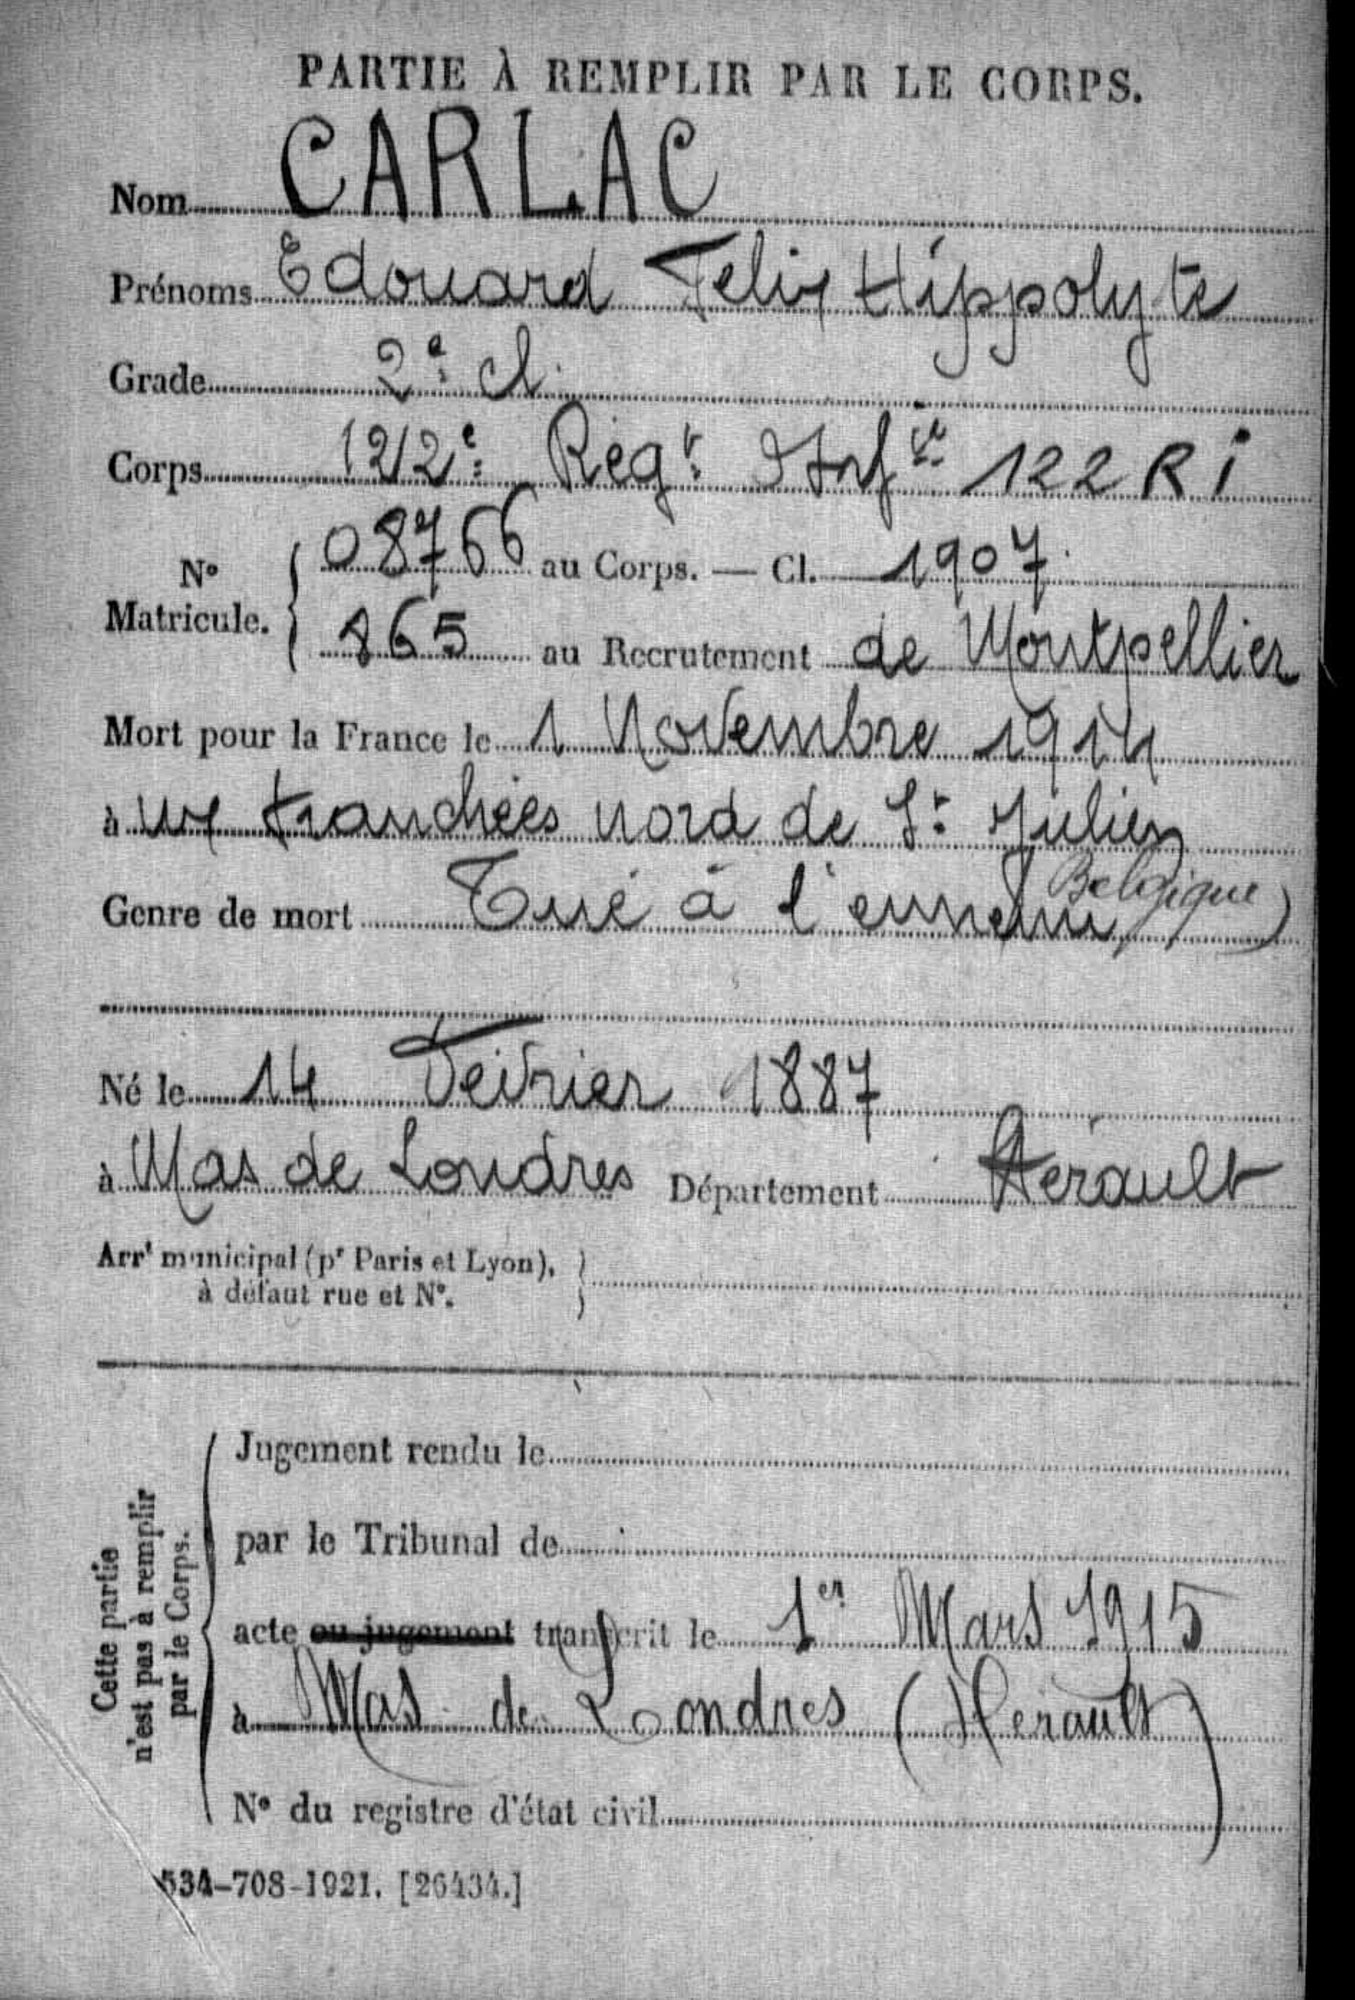 PARTIE À REMPLIR PAR LE CORPS.
Nom CARLAC
Prénoms Edouard Felix Hippolyte
Grade 2e cl.
Corps 122e Regt Infie 122 RI
No Matricule. 08766 au Corps. — Cl. 1907
865 au Recrutement de Montpellier
Mort pour la France le 1 Novembre 1914
à ux tranchées nord de St Julien
Belgique)
Genre de mort Tué à l'ennemi
Né le 14 Fevrier 1887
à Mas de Londres Département Herault
Arrt municipal (pr Paris et Lyon),
à défaut rue et No.
Cette partie
n'est pas à remplir
par le Corps.
Jugement rendu le
par le Tribunal de
acte ou jugement transcrit le 1er Mars 1915
à Mas de Londres (Herault)
No du registre d'état civil
534-708-1921. [26434.]